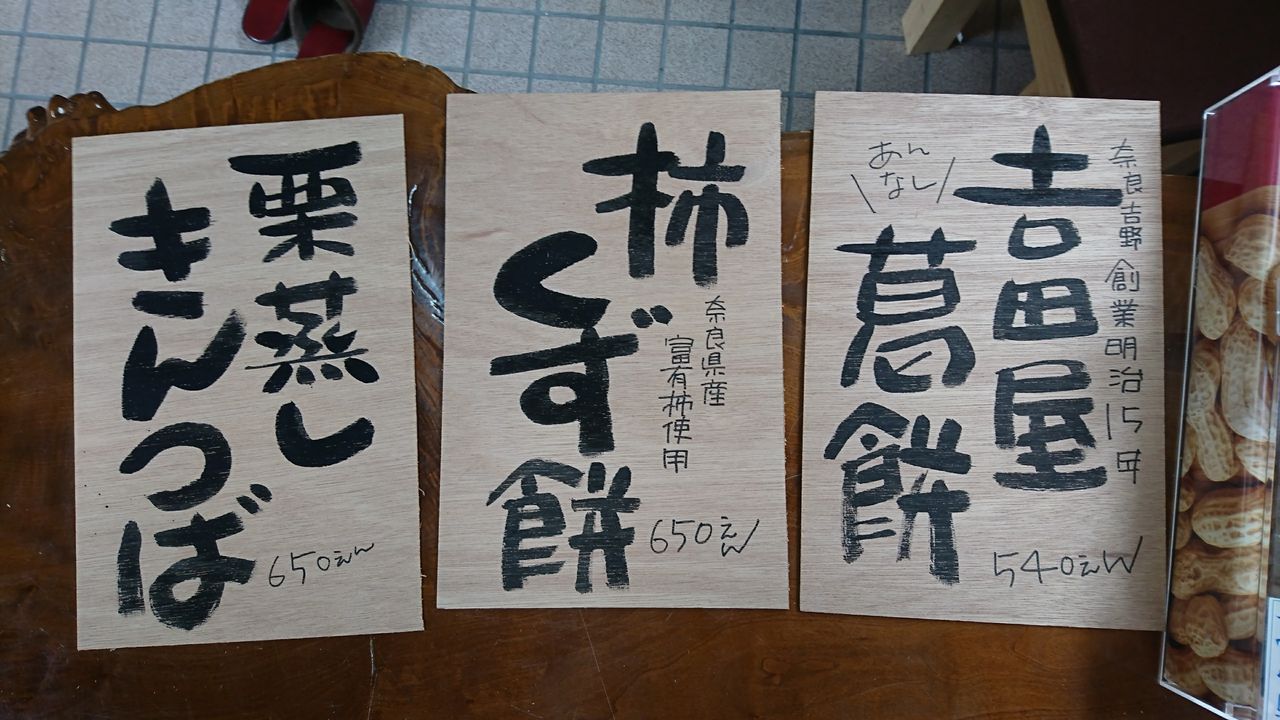 栗蒸し
きんつば
650えん
柿
くず餅
奈良県産
富有柿使用
650えん
奈良吉野創業明治15年
吉田屋
葛餅
あん
なし
540えん